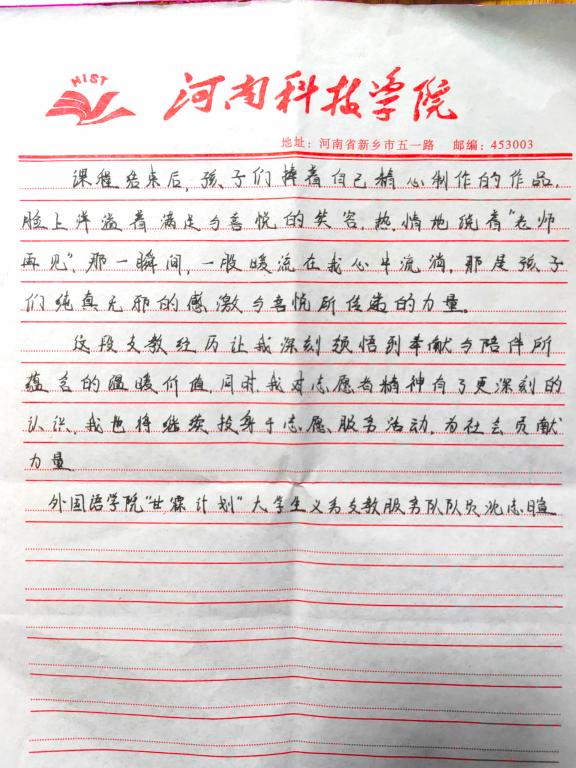 HIST
河南科技学院
地址：河南省新乡市五一路 邮编：453003
课程结束后，孩子们捧着自己精心制作的作品，
脸上洋溢着满足与喜悦的笑容，热情地说着“老师
再见”，那一瞬间，一股暖流在我心中流淌，那是孩子
们纯真无邪的感激与喜悦所传递的力量。
这段支教经历让我深刻领悟到奉献与陪伴所
蕴含的温暖价值，同时，我对志愿者精神有了更深刻的
认识，我也将继续投身于志愿服务活动，为社会贡献
力量
外国语学院“甘霖计划”大学生义务支教服务队队员沈志暄